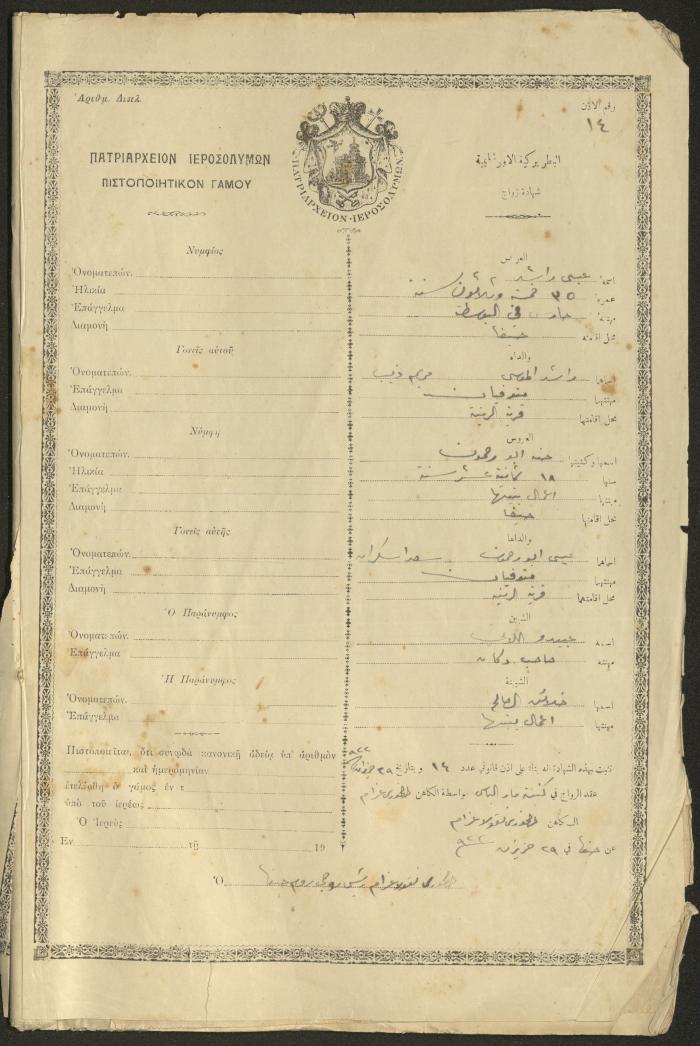 Ἀριθμ. Διπλ.
رقم الاذن
١٤
ΠΑΤΡΙΑΡΧΕΙΟΝ ΙΕΡΟΣΟΛΥΜΩΝ
ΠΙΣΤΟΠΟΙΗΤΙΚΟΝ ΓΑΜΟΥ
ΠΑΤΡΙΑΡΧΕΙΟΝ·ΙΕΡΟΣΟΛΥΜΩΝ
البطريركية الاورشليمية
شهادة زواج
Νυμφίος
Ὀνοματεπών.
Ἡλικία
Ἐπάγγελμα
Διαμονή
Γονεῖς αὐτοῦ
Ὀνοματεπών.
Ἐπάγγελμα
Διαμονή
Νύμφη
Ὀνοματεπών.
Ἡλικία
Ἐπάγγελμα
Διαμονή
Γονεῖς αὐτῆς
Ὀνοματεπών.
Ἐπάγγελμα
Διαμονή
Ὁ Παράνυμφος
Ὀνοματεπών.
Ἐπάγγελμα
Ἡ Παράνυμφος
Ὀνοματεπών.
Ἐπάγγελμα
Πιστοποιεῖται, ὅτι συνῳδὰ κανονικῇ ἀδείᾳ ὑπ' ἀριθμὸν
καὶ ἡμερομηνίαν
ἐτελέσθη ὁ γάμος ἐν τ
ὑπὸ τοῦ ἱερέως
Ὁ Ἱερεὺς
Ἐν τῇ 19
العريس
اسمه عيسى راشد
عمره ٣٥ خمسة وثلاثون سنة
مهنته في البوسطة
محل اقامته حيفا
والداه
اسماهما راشد الموسى مريم
مهنتهما متوفيان
محل اقامتهما قرية الرينة
العروس
اسمها وكنيتها حنه ابو رحمون
سنها ١٨ ثمانية عشر سنة
مهنتها اعمال بيتها
محل اقامتها حيفا
والداها
اسماهما عيسى ابو رحمون
مهنتهما متوفيان
محل اقامتهما قرية الرينة
الشبين
اسمه
مهنته صاحب دكان
الشبينة
اسمها الصالح
مهنتها اعمال بيتها
ثبت بهذه الشهادة انه بناء على اذن قانوني عدد ١٤ وبتاريخ ٢٩ حزيران ٩٢٢
عقد الزواج في كنيسة مار الياس بواسطة الكاهن الخوري عزام
الكاهن الخوري نقولا عزام
عن حيفا في ٢٩ حزيران ٩٢٢
Ὁ الخوري نقولا عزام رئيس روحي روم حيفا